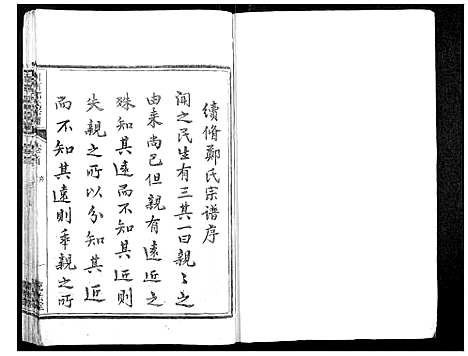 續脩鄭氏宗谱序
聞之民生有三其一曰親〻之
由来尚已但親有遠近之
殊知其遠而不知其近則
失親之所以分知其近
而不知其遠則乖親之所